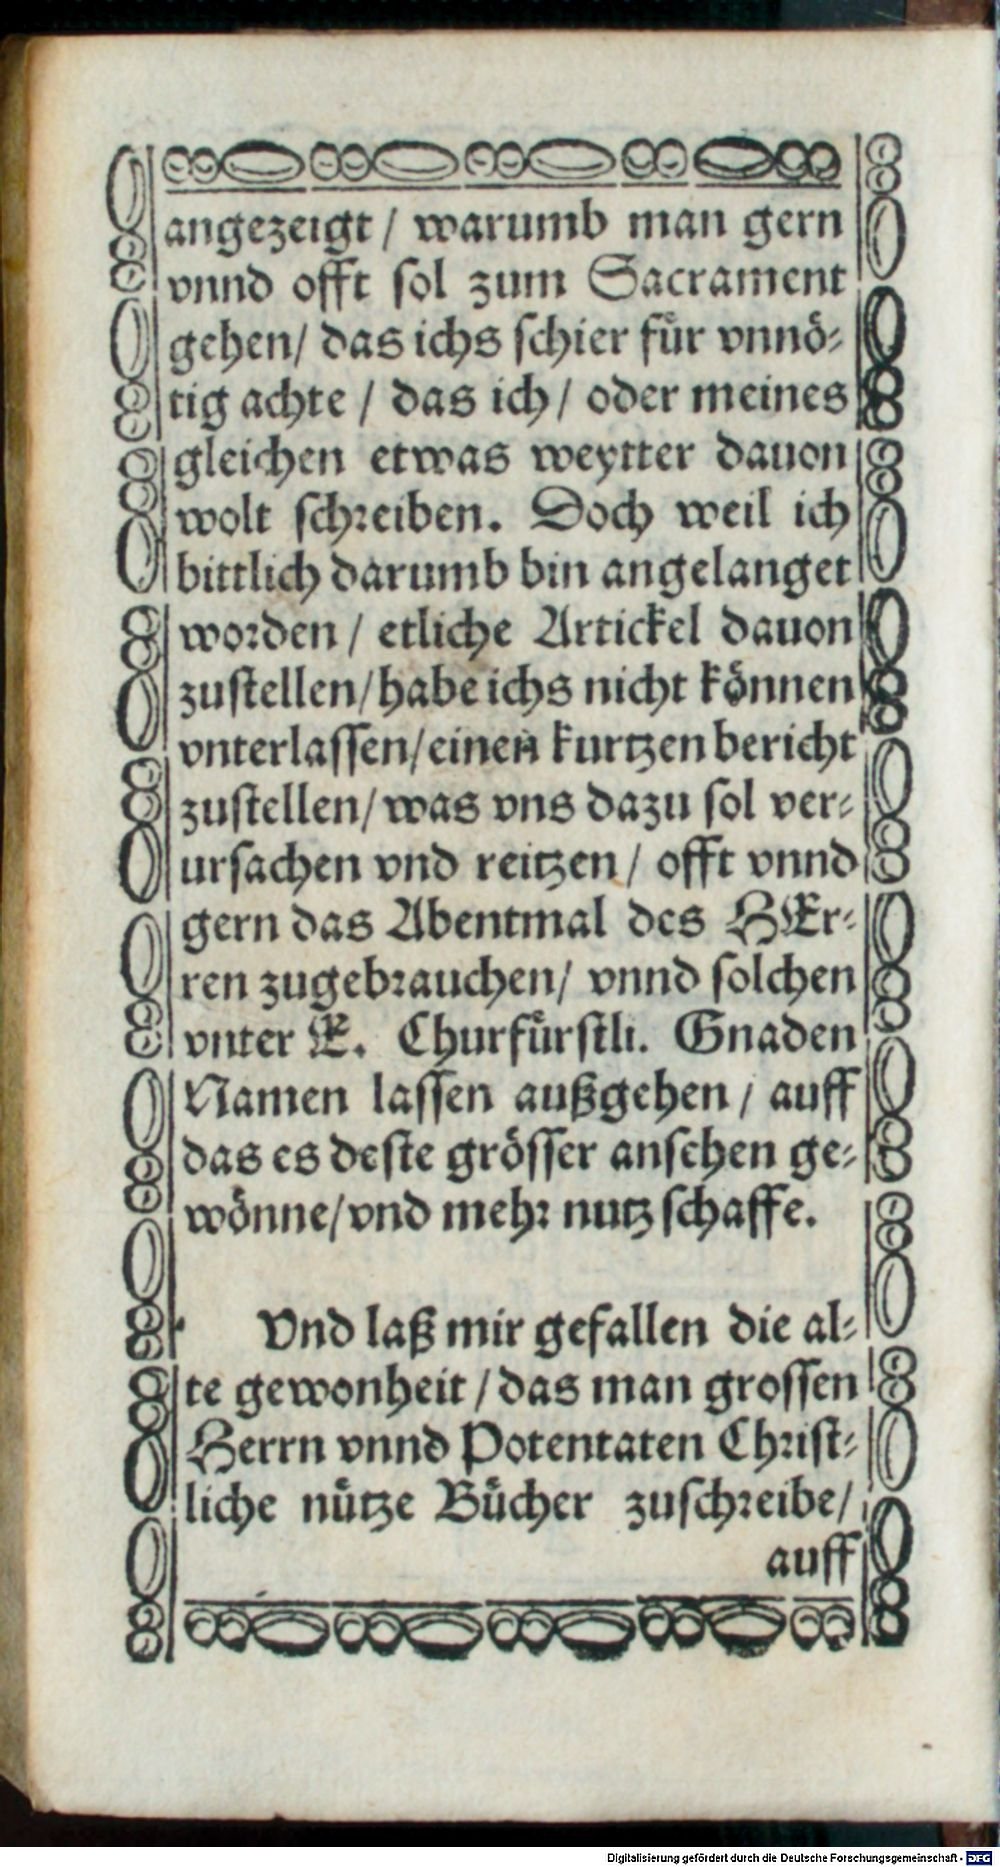 angezeigt / warumb man gern
vnnd offt sol zum Sacrament
gehen/ das ichs schier für vnnö-
tig achte / das ich/ oder meines
gleichen etwas weytter dauon
wolt schreiben. Doch weil ich
bittlich darumb bin angelanget
worden / etliche Artickel dauon
zustellen/habe ichs nicht können
vnterlassen/einen kurtzen bericht
zustellen/was vns dazu sol ver-
ursachen vnd reitzen / offt vnnd
gern das Abentmal des HEr-
ren zugebrauchen/ vnnd solchen
vnter E. Churfürstli. Gnaden
Namen lassen außgehen / auff
das es deste grösser ansehen ge-
wönne/vnd mehr nutz schaffe.
Vnd laß mir gefallen die al-
te gewonheit / das man grossen
Herrn vnnd Potentaten Christ-
liche nütze Bücher zuschreibe/
auff
Digitalisierung gefördert durch die Deutsche Forschungsgemeinschaft - DFG